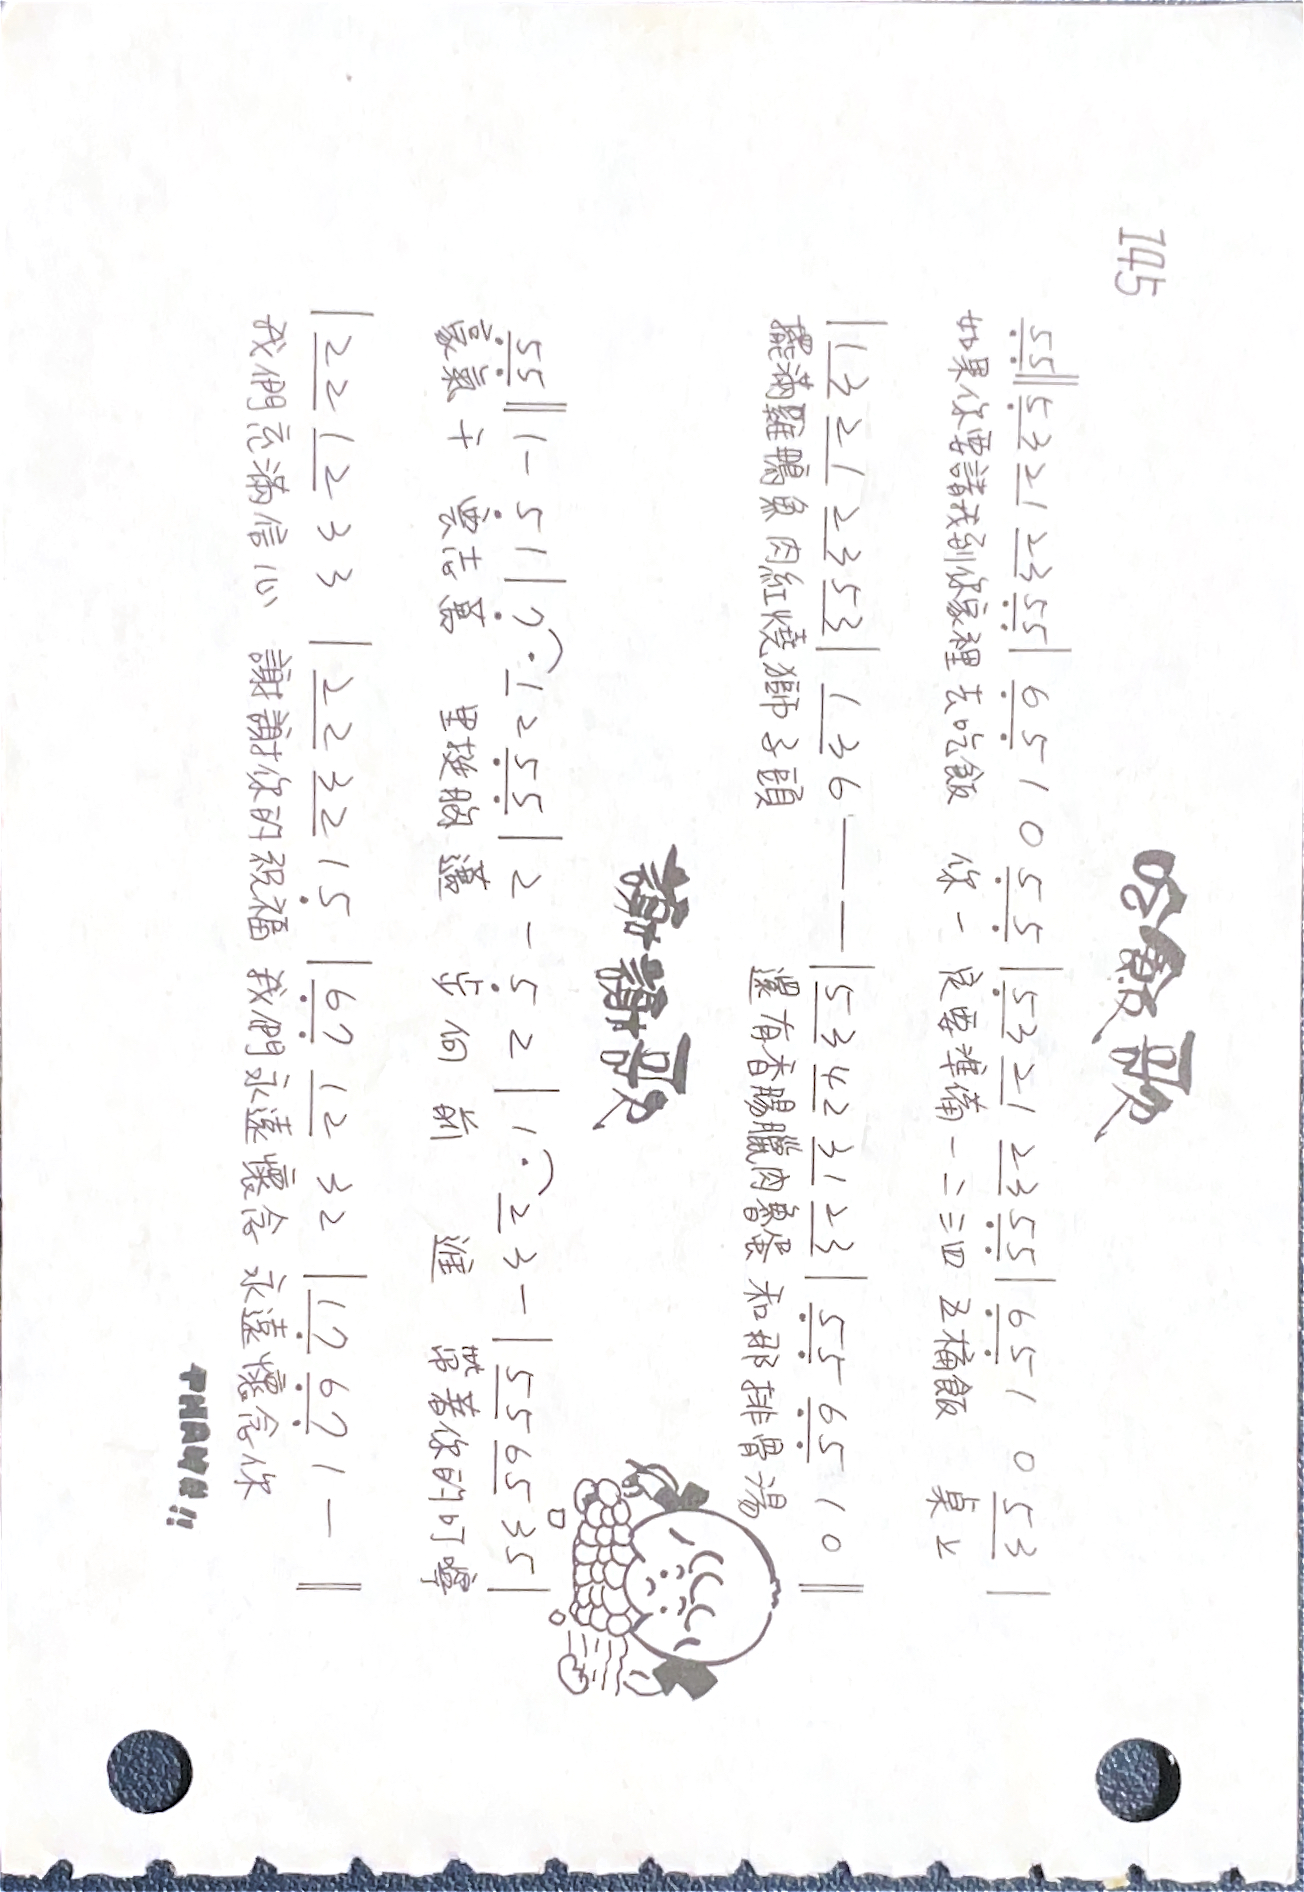 145
哈飯歌
55‖5321 2355| 65 1 0 55|5321 2355|65 1 0 53|
如果你要請我到你家裡去吃飯 你一定要準備一二三四五桶飯 桌上
|1321 2353| 136 — —|5342 3123|55 65 1 0‖
擺滿雞鴨魚肉紅燒獅子頭 還有香腸臘肉魯蛋和那排骨湯
謝謝歌
55‖1— 51|7·1 2 55|2 — 5 2|1·2 3 —|55 65 35|
豪氣干雲志萬 里挺胸邁 步向前 進 帶著你的叮嚀
|22 12 3 3 |22 32 1 5|67 12 32|17 67 1 — ‖
我們充滿信心 謝謝你的祝福 我們永遠懷念 永遠懷念你
THANK!!